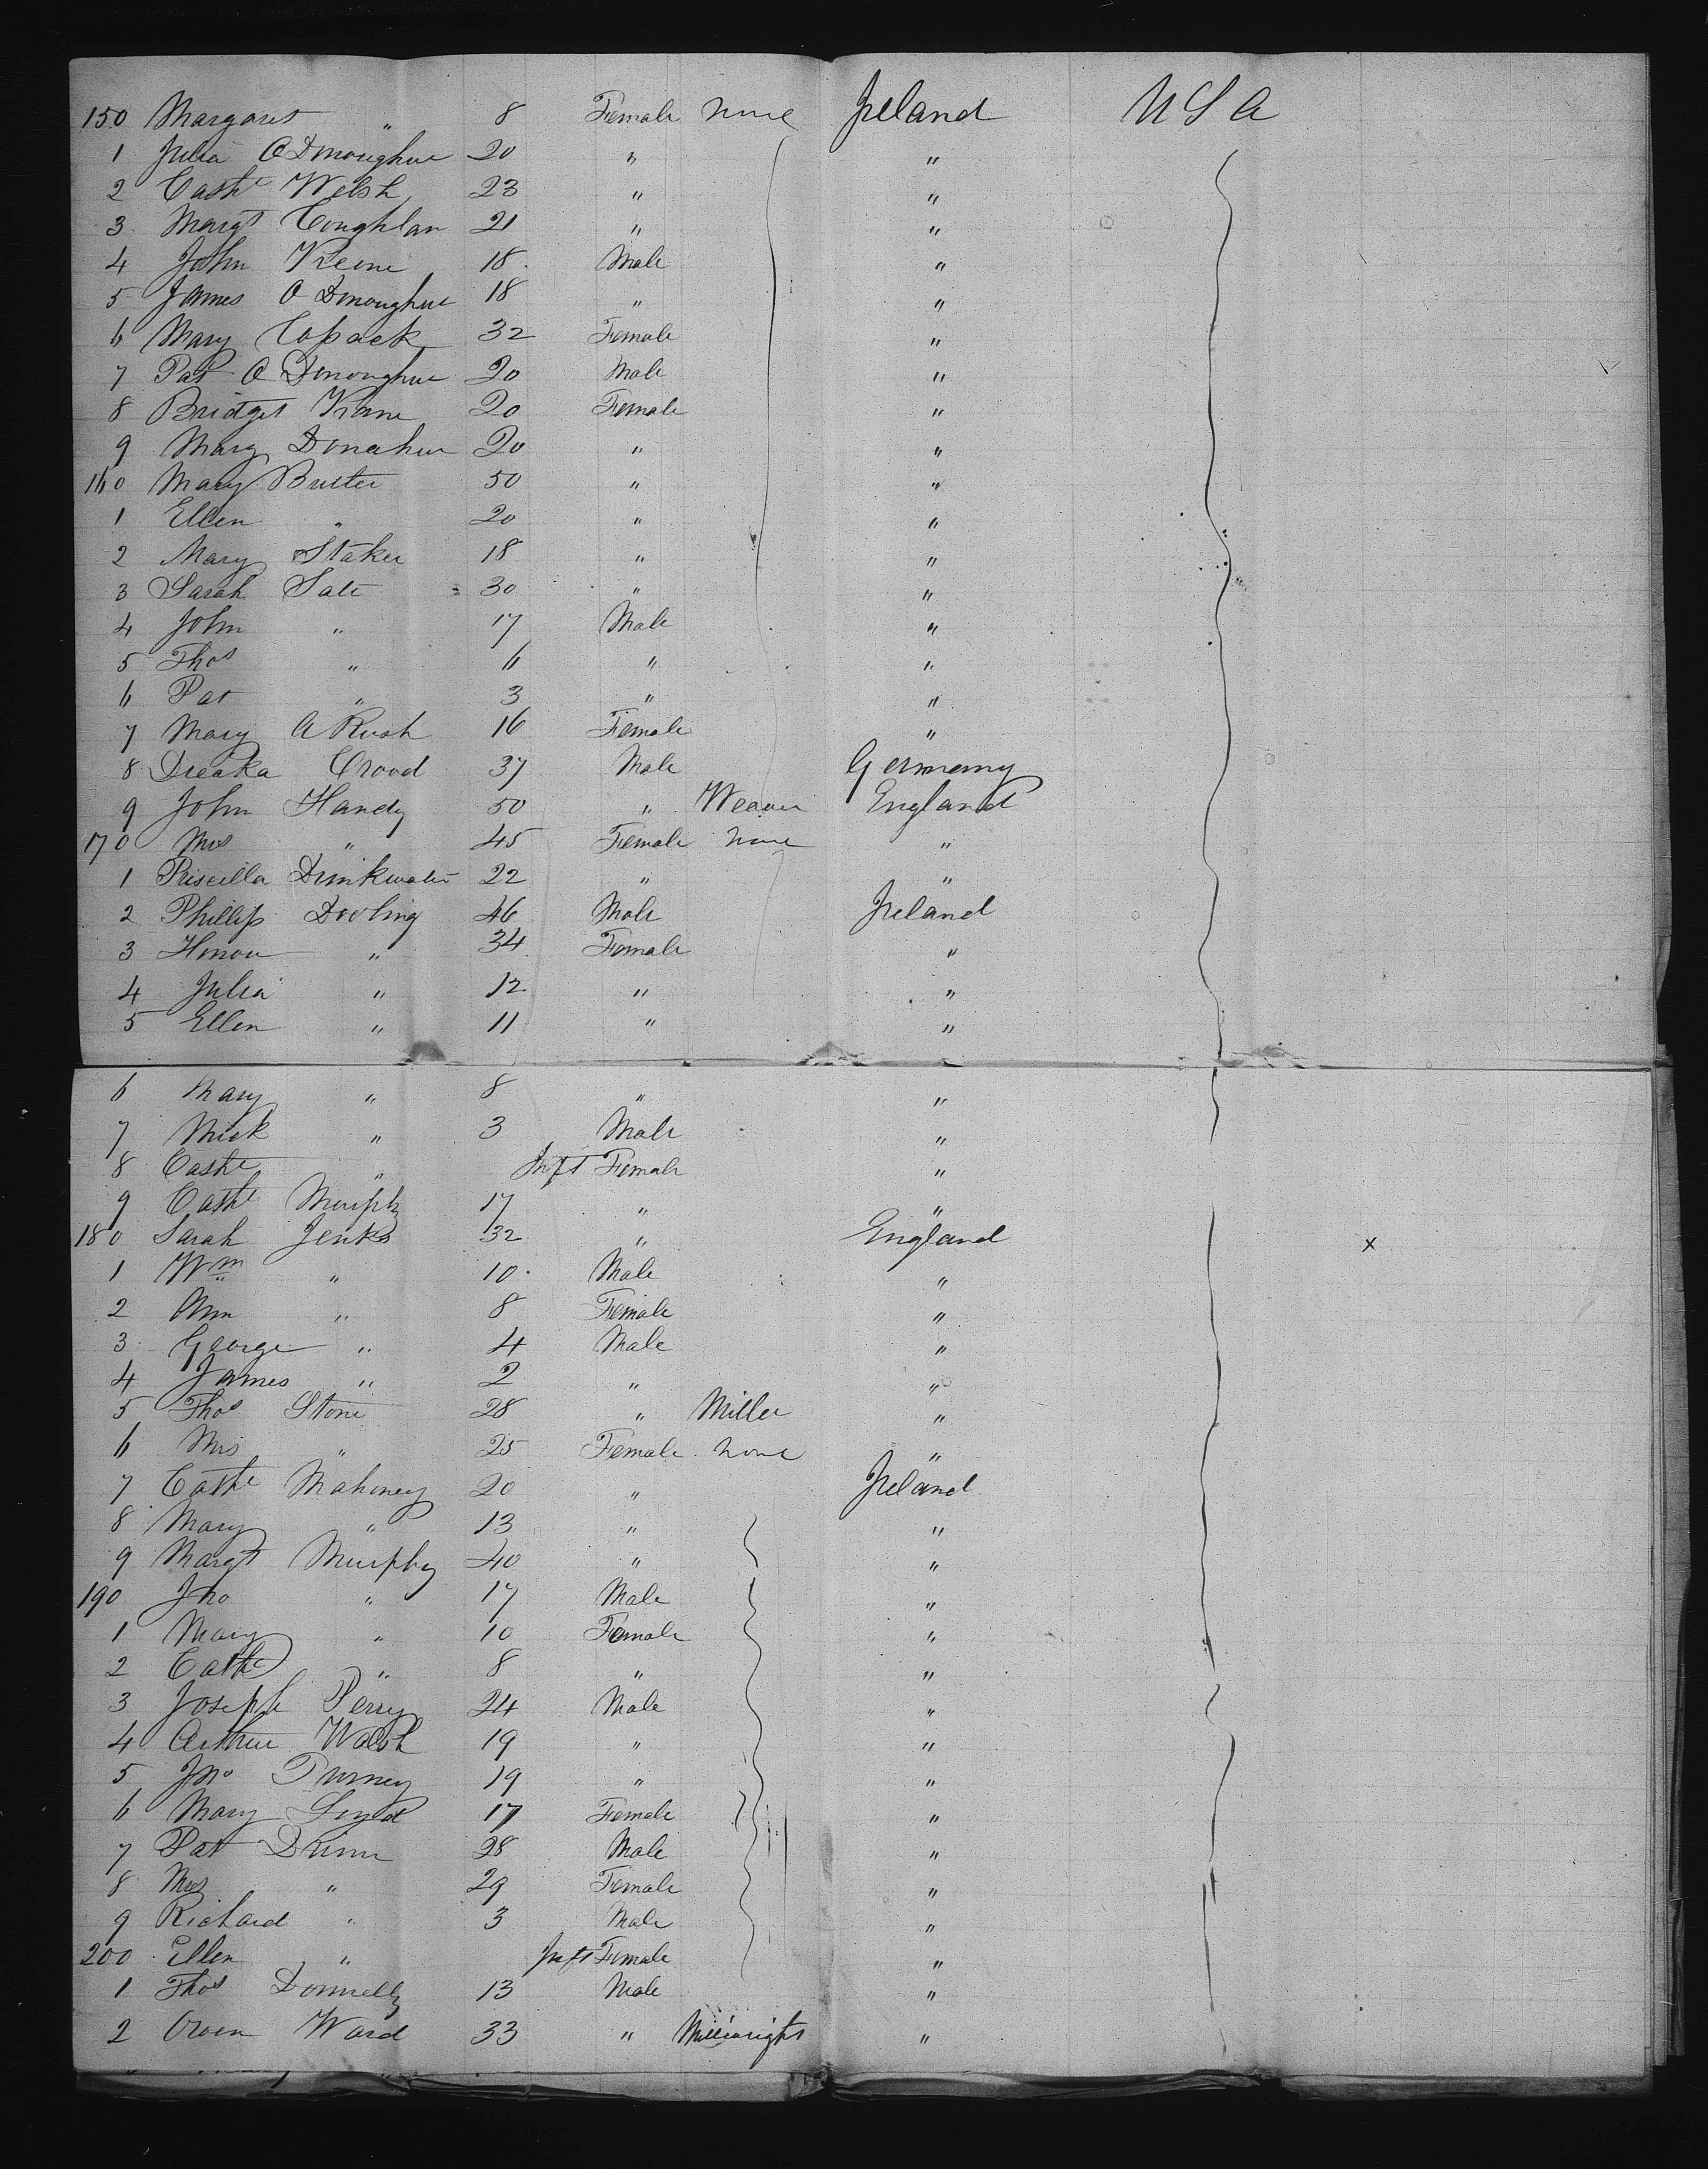 150 Margaret " 8 Female None Ireland USA
1 Julia O'Donoughue 20 " "
2 Cathe Welsh 23 " "
3 Margt Coughlan 21 " "
4 John Keene 18 Male "
5 James O Donoughue 18 " "
6 Mary Cusack 32 Female "
7 Pat O Donoughue 20 Male "
8 Bridget Kane 20 Female "
9 Mary Donahue 20 " "
160 Mary Butter 50 " "
1 Ellen " 20 " "
2 Mary Staker 18 " "
3 Sarah Sate 30 " "
4 John " 17 Male "
5 Thos " 6 " "
6 Pat " 3 " "
7 Mary A Rush 16 Female "
8 37 Male Germany
9 John Handy 50 " Weaver England
170 Mrs " 45 Female None "
1 Priscilla Drinkwater 22 " "
2 Phillip Dooling 46 Male Ireland
3 Honour " 34 Female "
4 Julia " 12 " "
5 Ellen " 11 " "
6 Mary " 8 " "
7 Mick " 3 Male "
8 Cathe " Inft Female "
9 Cathe Murphy 17 " "
180 Sarah Jenks 32 " England x
1 Wm " 10 Male "
2 Ann " 8 Female "
3 George " 4 Male "
4 James " 2 " "
5 Thos Stone 28 " Miller "
6 Mrs " 25 Female None "
7 Cathe Mahoney 20 " Ireland
8 Mary " 13 " "
9 Margt Murphy 40 " "
190 Jno " 17 Male "
1 Mary " 10 Female "
2 Cathe " 8 " "
3 Joseph Perry 24 Male "
4 Arthur Walsh 19 " "
5 Jno 19 " "
6 Mary 17 Female "
7 Pat Dunn 28 Male "
8 Mrs " 29 Female "
9 Richard " 3 Male "
200 Ellen " Inft Female "
1 Thos Donnelly 13 Male "
2 Owen Ward 33 " Millwright "